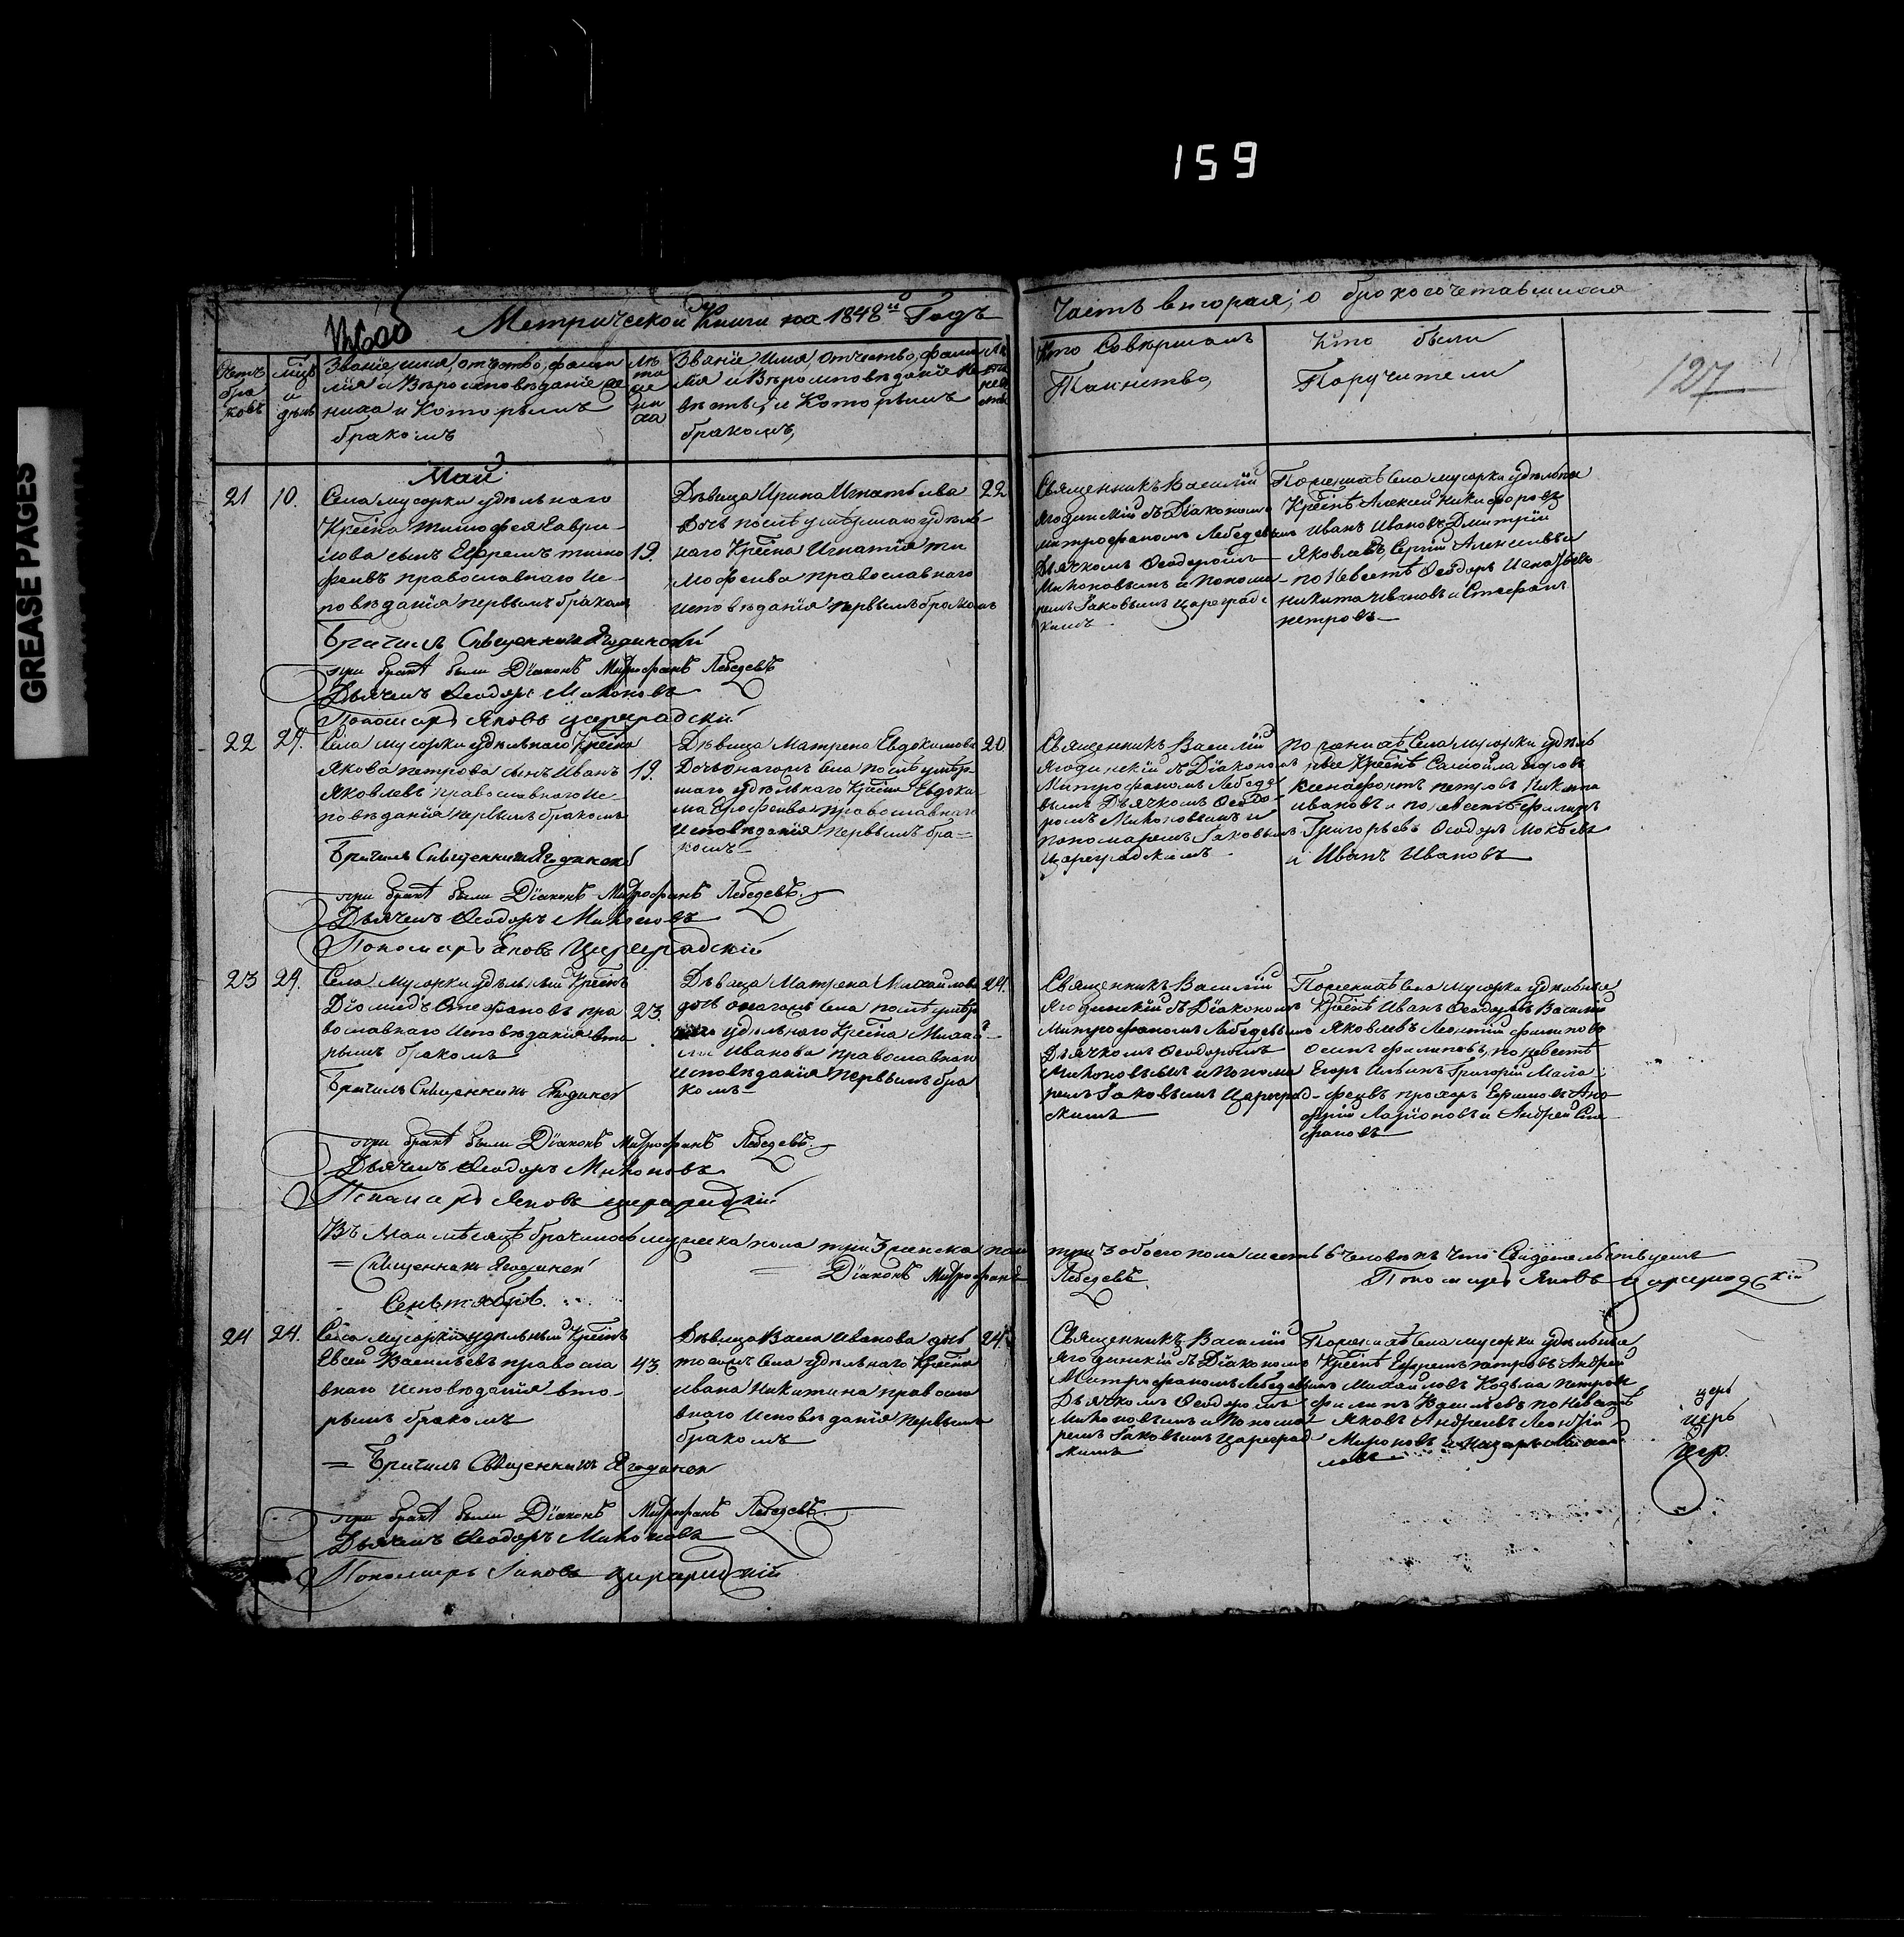 159
GREASE PAGES
Метрической Книги на 1848й Годъ
Часть вторая, о бракосочетавшихся
127
Счетъ браковъ
мцъ и день
Званіе, имя, отчество, фами
лія и Вѣроисповѣданіе же
ниха и Которымъ
бракомъ
Лѣта жениха
Званіе, Имя, Отчество, фами
лія и Вѣроисповѣданіе не
вѣсты, и Которымъ
бракомъ,
Кто Совершалъ
Таинство,
Кто были
Поручители
Маи
21
10.
Села мусорки удѣльнаго
Крестна Тимофея Гаври-
лова сынъ Ефремъ тимо
феивъ православнаго Ис-
повѣданія первымъ бракомъ
19.
Дѣвица Ирина Игнатьева
Дочь послѣ умѣршаго удѣль-
наго Крестна Игнатія ти
мофеива православнаго
исповѣданія первымъ бракомъ
22
Священникъ Василій
Ягодинскій съ Діакономъ
митрофаномъ Лебедевымъ
Дьячкомъ Ѳеодоромъ
Михоновымъ и Понома-
ремъ Іаковымъ Цареград
скимъ
По женихѣ Села мусорки удѣльны
Крестнѣ Алексей Никифоровъ
Иванъ Ивановъ Дмитрій
Яковлевъ, Сергій Алексиевъ и
по Невестѣ Ѳеодоръ
никита ивановъ и Стефанъ
петровъ
Бра­чилъ Священникъ Ягодинскій
при бракѣ были Діаконъ Митрофанъ Лебедевъ
Дьячекъ Ѳеодоръ Михоновъ
Пономарь Яковъ цареградскій
22
Села мусорки удѣльнаго Крестна
Якова петрова сынъ Иванъ
Яковлевъ православнаго Ис-
повѣданія первымъ бракомъ
19.
Дѣвица Матрена Евдокимова
Дочь онагожъ Села послѣ умѣр-
шаго удѣльнаго Крестна Евдоки-
ма Ерофеива православнаго
Исповѣданія первымъ бра=
комъ
20
Священникъ Василій
Ягодинскій съ Діакономъ
Митрофаномъ Лебеде
вымъ Дьячкомъ Ѳеодо-
ромъ Михоновымъ и
пономаремъ Іаковымъ
Цареградскимъ
по женихѣ Села мусорки удѣль
ные Крестнѣ Самойла
петровъ Никита
ивановъ и по невестѣ филипъ
Григорьевъ Ѳеодоръ
и Иванъ Ивановъ
Бра­чилъ Священникъ Ягодинскій
при бракѣ были Діаконъ Митрофанъ Лебедевъ
Дьячекъ Ѳеодоръ Михоновъ
Пономарь Яковъ Цареградскій
23
Села Мусорки удѣльный Крестнъ
Діомидъ Стефановъ пра
вославнаго Исповѣданія вто
рымъ бракомъ
23.
Дѣвица Матрена Михайлова
дочь онагожъ Села послѣ умѣр
шаго удѣльнаго Крестна Михаи-
ла Иванова православнаго
исповѣданія первымъ бра
комъ
24.
Священникъ Василій
Ягодинскій съ Діакономъ
Митрофаномъ Лебедевымъ
Дьячкомъ Ѳеодоромъ
Михоновымъ и Понома
ремъ Іаковымъ Цареград-
скимъ
По женихѣ Села Мусорки удѣльные
Крестнѣ Иванъ Ѳеодоровъ Василій
Яковлевъ Леонтій филиповъ
Осипъ филиповъ, по невестѣ
Егоръ Ильинъ Григорій Мала
феивъ прохоръ Ефимовъ
Ларіоновъ и Андрей Сте
фановъ
Бра­чилъ Священникъ Ягодинскій
при бракѣ были Діаконъ Митрофанъ Лебедевъ.
Дьячекъ Ѳеодоръ Михоновъ
Пономарь Яковъ цареградскій
Въ Маи мѣсяцѣ брачилось мужеска пола три 3 женска пола три 3 обоего пола шесть 6 человѣкъ что Свидетельствуемъ
= Священникъ Ягодинскій
= Діаконъ Митрофанъ Лебедевъ
Пономарь Яковъ Цареградскій
Сентября.
24
24.
Села мусорки удѣльный Крестнъ
Евсей Васильевъ правосла
внаго исповѣданія вто-
рымъ бракомъ
43.
Дѣвица Васа Иванова дочь
тогожъ Села удѣльнаго Крестна
ивана Никитина правосла
внаго Исповѣданія первымъ
бракомъ
24.
Священникъ Василій
Ягодинскій съ Діакономъ
Митрофаномъ Лебедевымъ
Дьячкомъ Ѳеодоромъ
Михоновымъ и Понома
ремъ Іаковымъ Цареград
скимъ
По женихѣ Села мусорки удѣльные
Крестнѣ Ефремъ петровъ Андрей
Михаиловъ Козьма петровъ
филипъ Васильевъ по невестѣ
Яковъ Андреивъ Леонтій
Мироновъ и Назаръ Михай
ловъ
церъ
церъ
цер.
= Бра­чилъ Священникъ Ягодинск
при бракѣ были Діаконъ Митрофанъ Лебедевъ.
Дьячекъ Ѳеодоръ Михоновъ
Пономарь Іаковъ цареградскій